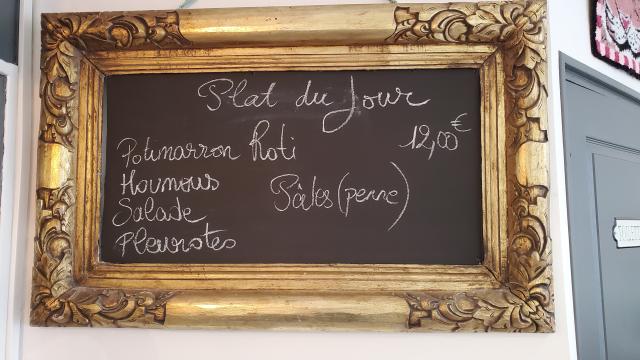 Plat du Jour
12,00€
Potimarron Roti
Houmous
Pâtes (penne)
Salade
Pleurotes